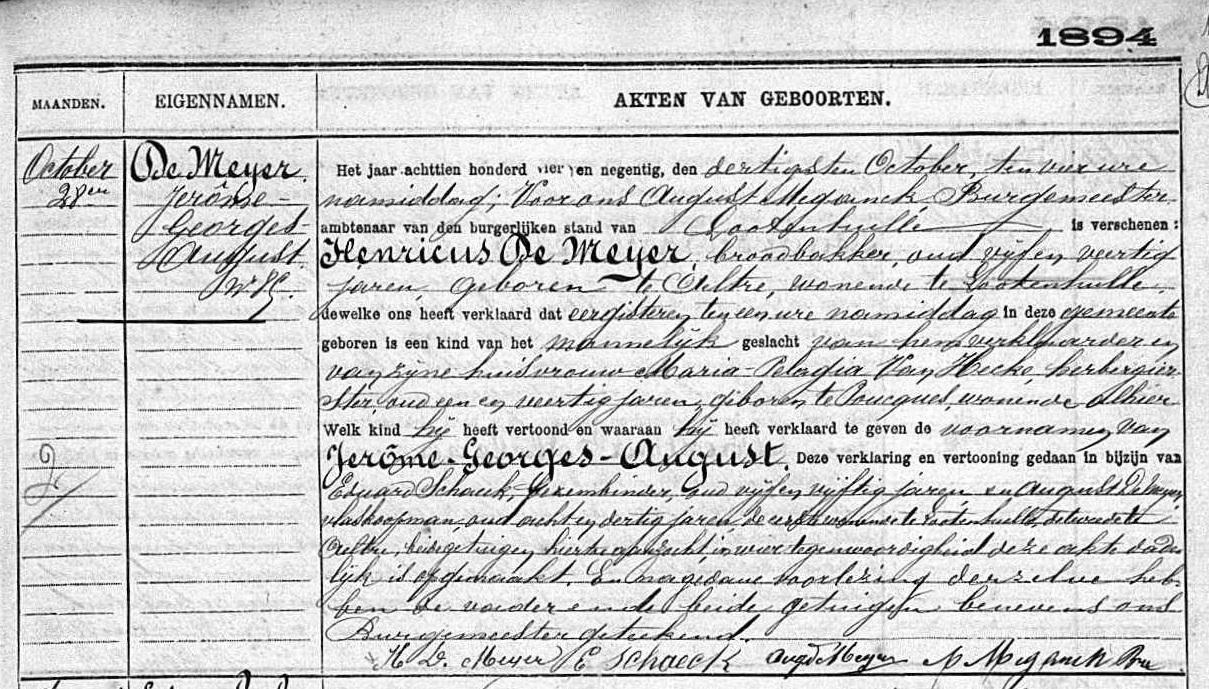 1894
MAANDEN. EIGENNAMEN. AKTEN VAN GEBOORTEN.
October
28en
De Meyer
Jerôme-
Georges-
August.
Het jaar achttien honderd vier en negentig, den dertigsten October, ten vier ure
namiddag; Voor ons August Meganck, Burgemeester
ambtenaar van den burgerlijken stand van Lootenhulle is verschenen:
Henricus De Meyer, broodbakker, oud vijf en veertig
jaren, geboren te Aeltre, wonende te Lootenhulle,
dewelke ons heeft verklaard dat eergisteren ten een ure namiddag in deze gemeente
geboren is een kind van het mannelijk geslacht van hem verklaarder en
van zijne huisvrouw Maria-Pelagia Van Hecke, herbergier-
ster, oud een en veertig jaren, geboren te Poucques, wonende alhier
Welk kind hij heeft vertoond en waaraan hij heeft verklaard te geven de voornamen van
Jerôme-Georges-August. Deze verklaring en vertooning gedaan in bijzijn van
Eduard Schaeck, oud vijf en vijftig jaren en August De Meyer,
vlaskoopman, oud acht en dertig jaren, de eerste wonende te Lootenhulle, de tweede te
Aeltre, beide getuigen hiertoe aanzocht in wier tegenwoordigheid deze akte dade-
lijk is opgemaakt. En na gedane voorlezing derzelve heb-
ben de vader en de beide getuigen benevens ons
Burgemeester geteekend.
H D. Meyer E Schaeck Aug De Meyer A Meganck